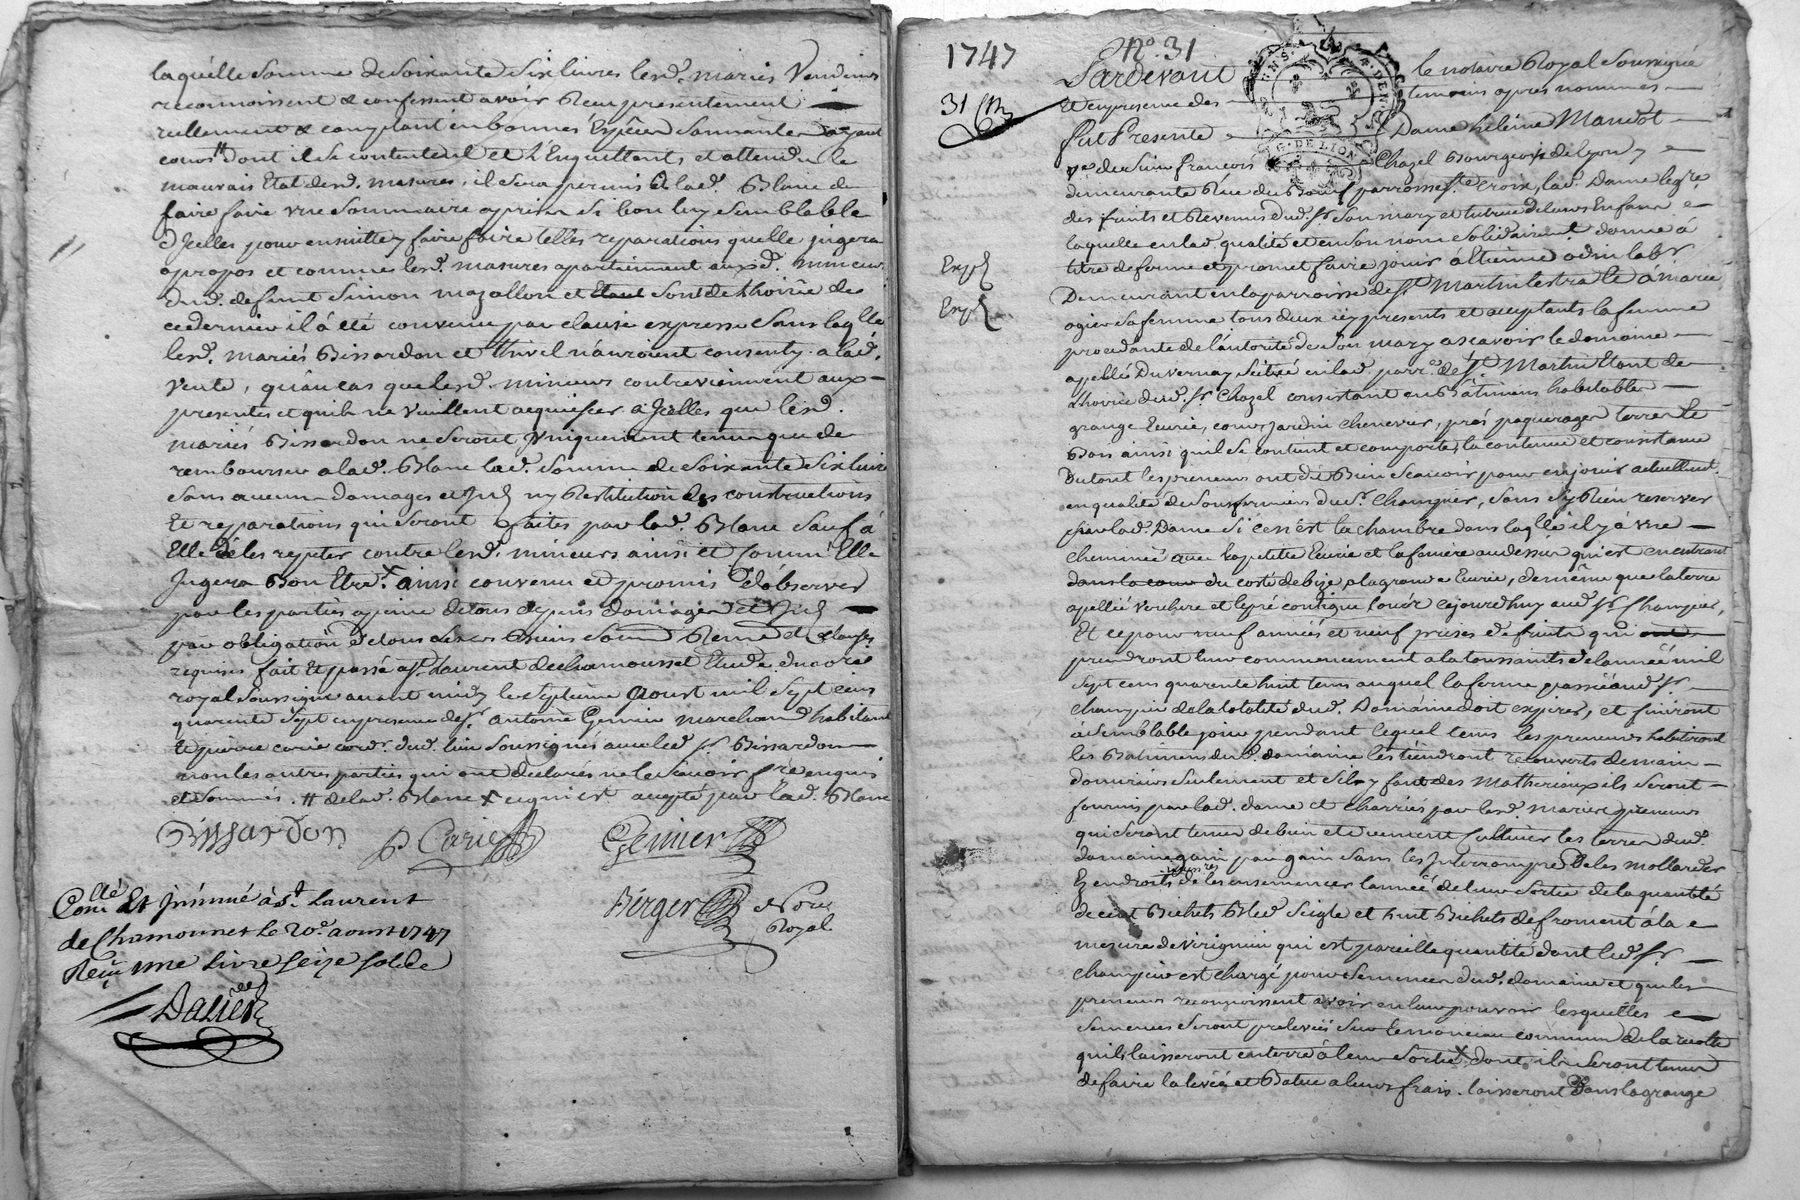 laquélle Somme de Soixante Six livres lesd. mariés Vendeurs
reconnoissent & confessent avoir Receu presentement
réellement & comptant en bonnes Espéces Sonnantes ayant
cours # dont il Se contentent et L'En quittent, et attendu le
mauvais Etat desd. masures, il Sera permis à lad. Blanc de
faire faire vne Sommaire apprise Si bon luy Semble de
d'Jcelles pour ensuitte y faire faire telles reparations quelle jugera
apropos et comme lesd. masures apartiennent auxd. mineurs
dud. defunt Simon mazallon et Sont de L'hoirie de
ce dernier il à eté convenu par clause expresse Sans laqlle
lesd. mariés Bissardon et n'auroient consenty a lad.
vente, qu'au cas que lesd. mineurs contreviennent aux
presentes et quils ne veuillent acquiescer à Jcelles que lesd.
mariés Bissardon ne Seront Vniquement tenus que de
rembourser a lad. Blanc lad. Somme de Soixante Six livres
Sans aucun damages et ny Restitution des constructions
Et reparations qui Seront faites par lad. Blanc Sauf à
Elle de les repeter contre lesd. mineurs ainsi et comme Elle
Jugera Bon Etre. x ainsi convenu et promis d'observer
par les parties a peine de tous depens domages et
par obligation de tous Biens Soumis. Renon. et clauses
requises fait Et passé a St. Laurent de chamousset Etude du nore
royal Soussigné avant midy le Septieme Aoust mil Sept cens
quarente Sept en presence de Sr. antoine Genier marchand habitant
Et pierre carie cordr. dud. lieu Soussignés avec led. Sr. Bissardon
non les autres parties qui ont déclarés ne le Scavoir fre enquis
et Sommés. # de lad. Blanc x accepté par lad. Blanc
Bissardon P Carie Genier
Berger Nore Royal
Conllé Et Jnsinué à St. Laurent
de Chamousset Le 20e. aoust 1747
Reçu une Livre seize sols
Dalier
1747 No. 31
31
Pardevant le notaire Royal Soussigné
Et en presence des temoins apres nommés
fut Presente Dame heléine Mandot
ve. de Sieur françois Chazel Bourgeois de Lyon y
demeurante Rüe du Bœuf parroisse Ste. Croix, lad. Dame
des fruits et Revenus dud. Sr. Son mary et tutrice de leurs Enfans
laquelle en lad. qualité et en Son nom Solidairemt. donne à
titre de ferme et promet faire jouir à Etienne
Demeurant en la parroisse de St. Martin lestra et à Marie
ogier Sa femme tous deux icy presents et acceptants la femme
procedante de l'autorité de Son mary ascavoir le domaine
apellé Duvernay Scitué en lad. parr. de St. Martin Etant de
L'hoirie dud. Sr. Chazel consistant en Bâtimens habitables
grange Ecurie, cour, jardin chenevier, prés paquerages terres et
Bois ainsi quil Se contient et comporte, la contenue et consistance
Dutout les preneurs ont dit Bien Scavoir pour en jouir actuellemt.
en qualité de Sousfermiers du Sr. Champier, Sans S'y Rien reserver
par lad. Dame Si ce n'est la chambre dans laqlle il y à vne
cheminée avec la petite Ecurie et la feniere au dessus qui est en entrant
dans la cour du costé de bize, la grande Ecurie, de même que la terre
apellée Verchere et le pré contigue loués cejourdhuy aud. Sr. Champier,
Et ce pour neuf années et neuf prises de fruits qui
prendront leur commencement a la toussaints de l'année mil
Sept cens quarente huit tems auquel la ferme passée aud. Sr.
Champier de la totalité dud. Domaine doit expirer, et finiront
à Semblable jour pendant lequel tems les preneurs habiteront
les Batimens dud. domaine les tiendront recouverts de main
d'ouvriers Seulement et S'il y faut des Matheriaux ils Seront
fournis par lad. dame et charriés par lesd. mariés preneurs
qui Seront tenus de bien et düement Cultiver les terres dud.
domaine gain par gain Sans les Jnterrompre De les mollarder
Es endroits de les ensemencer l'année de leur Sortie de la quantité
de cent Bichets Bled Seigle et huit Bichets de froment à la
mesure de Virignin qui est pareille quantité dont led. Sr.
Champier est chargé pour Semences dud. domaine et que les
preneurs reconnoissent avoir en leur pouvoir lesquelles
Semences Seront prelevées Sur le monceau commun de la recolte
quils laisseront en terre à leur Sortie x dont ils Seront tenus
de faire la levée et Batue a leurs frais. laisseront Dans la grange